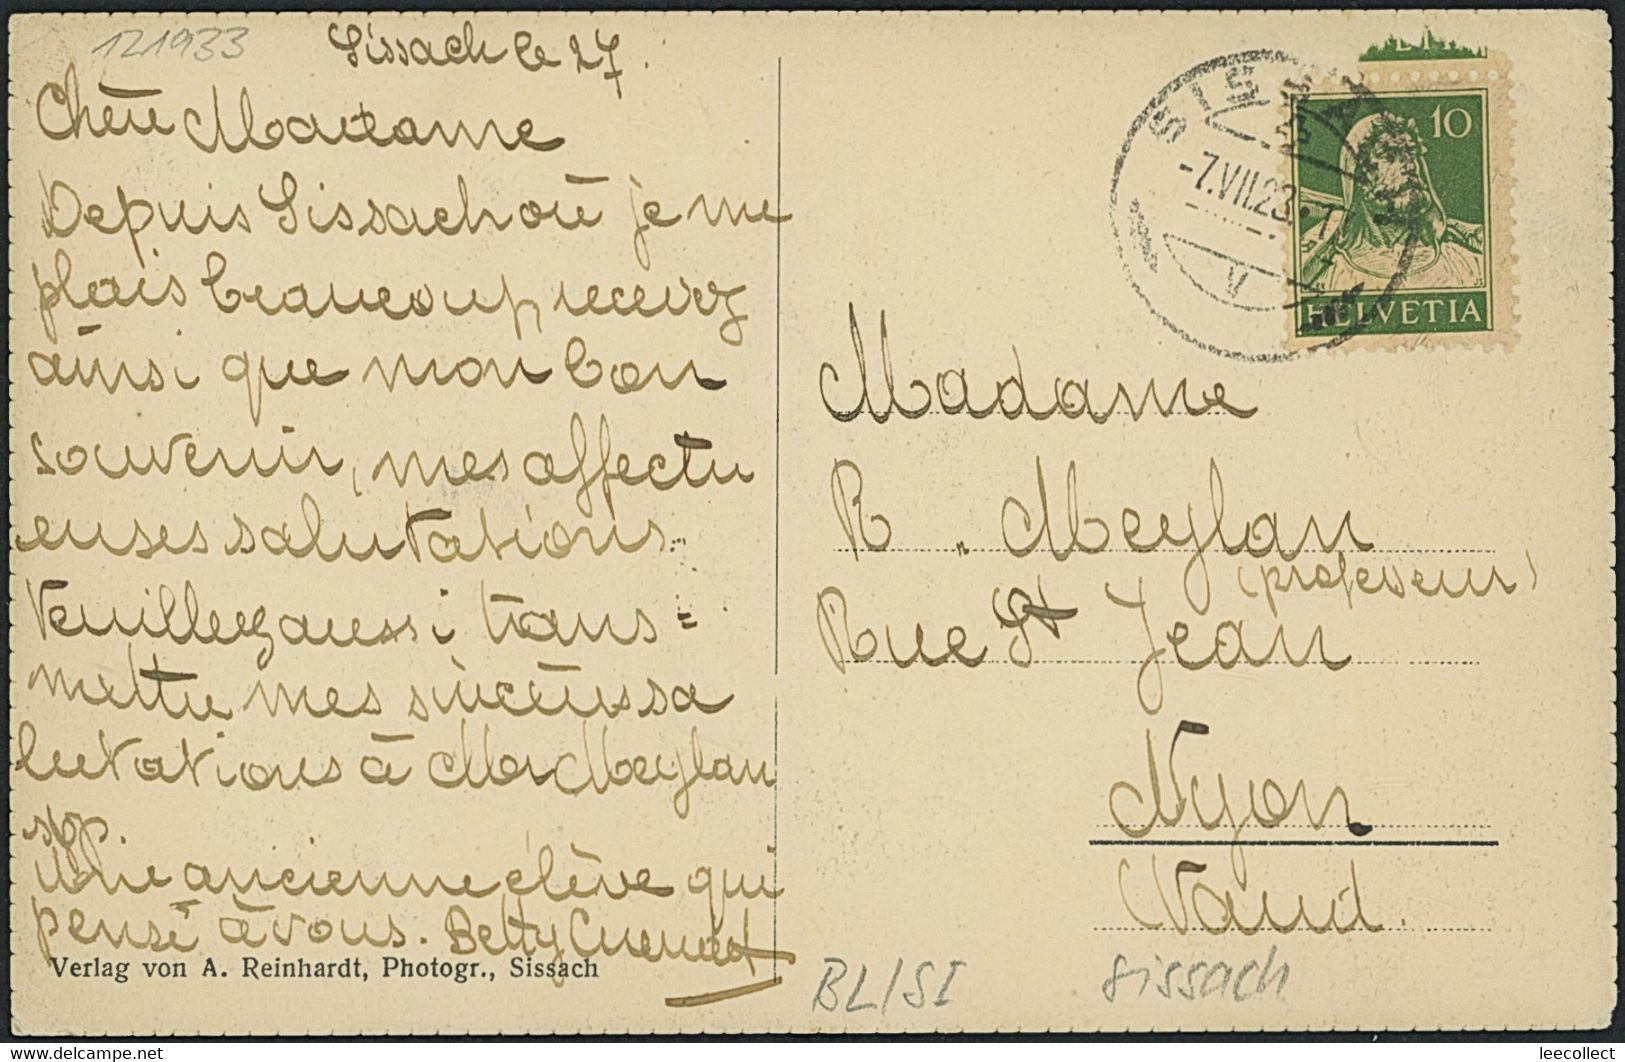 121933
Sissach le 27.
Chère Madame
Depuis Sissach où je me
plais beaucoup, recevez
ainsi que mon bon
souvenir, mes affectu
euses salutations.
Veuillez aussi trans=
mettre mes sincères sa
lutations à Mr Meylan
Une ancienne élève qui
pense à vous. Betty Cuendet
Verlag von A. Reinhardt, Photogr., Sissach
SISSACH
-7.VII.23
V
10
HELVETIA
Madame
R. Meylan
(professeur)
Rue St Jean
Nyon
Vaud.
BL/SI
Sissach
leecollect